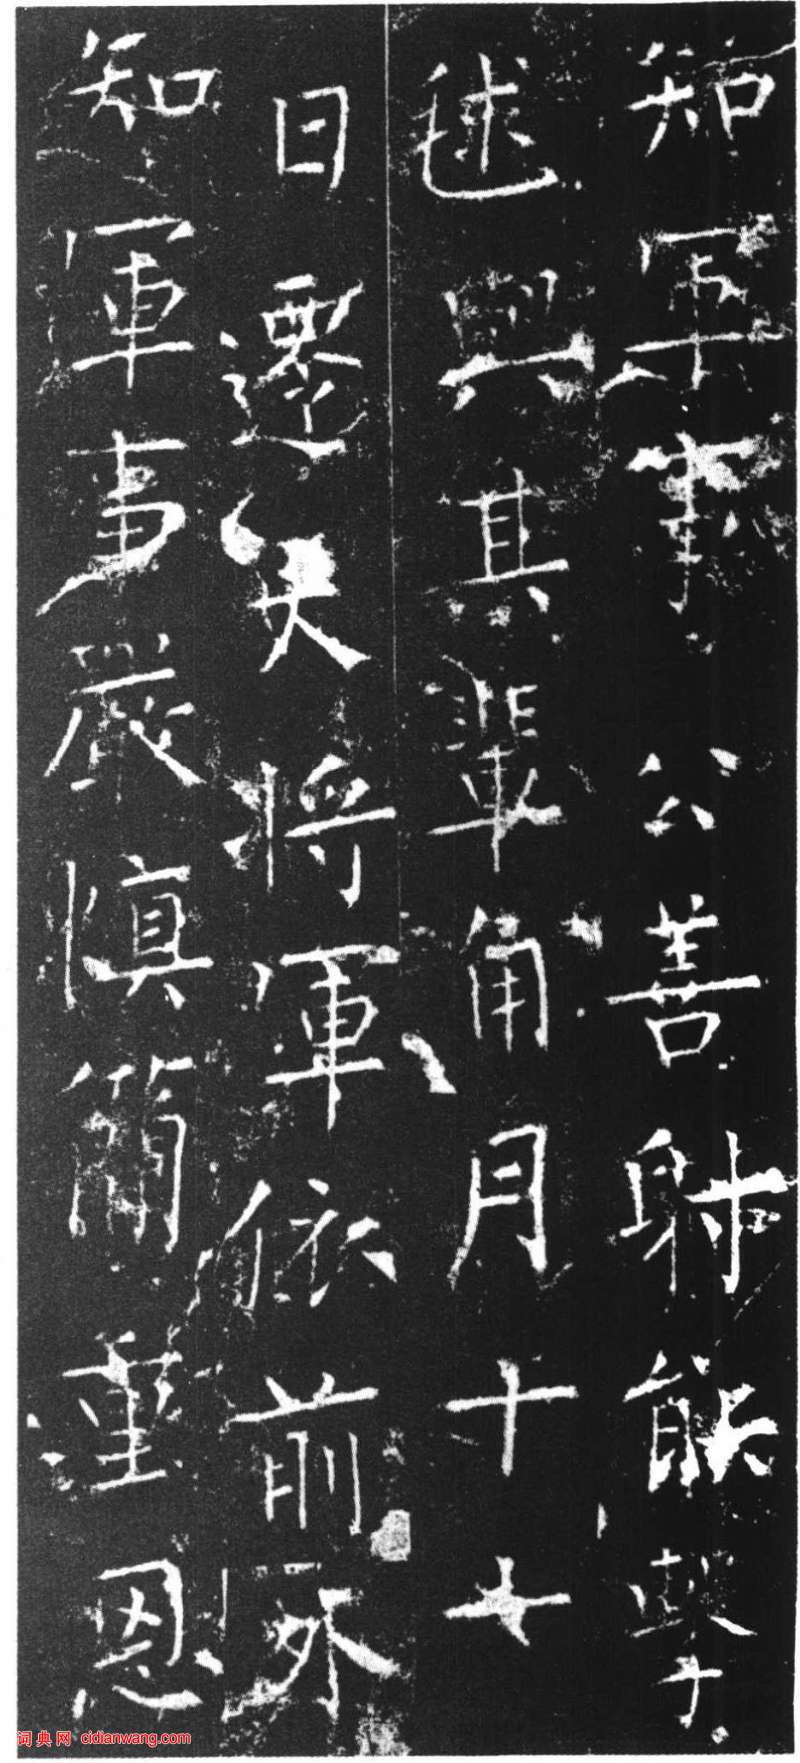 知軍事公善射能擊
毬與其輩角月十七
日遷大將軍依前
知軍事嚴慎簡重恩
词典网 cidianwang.com